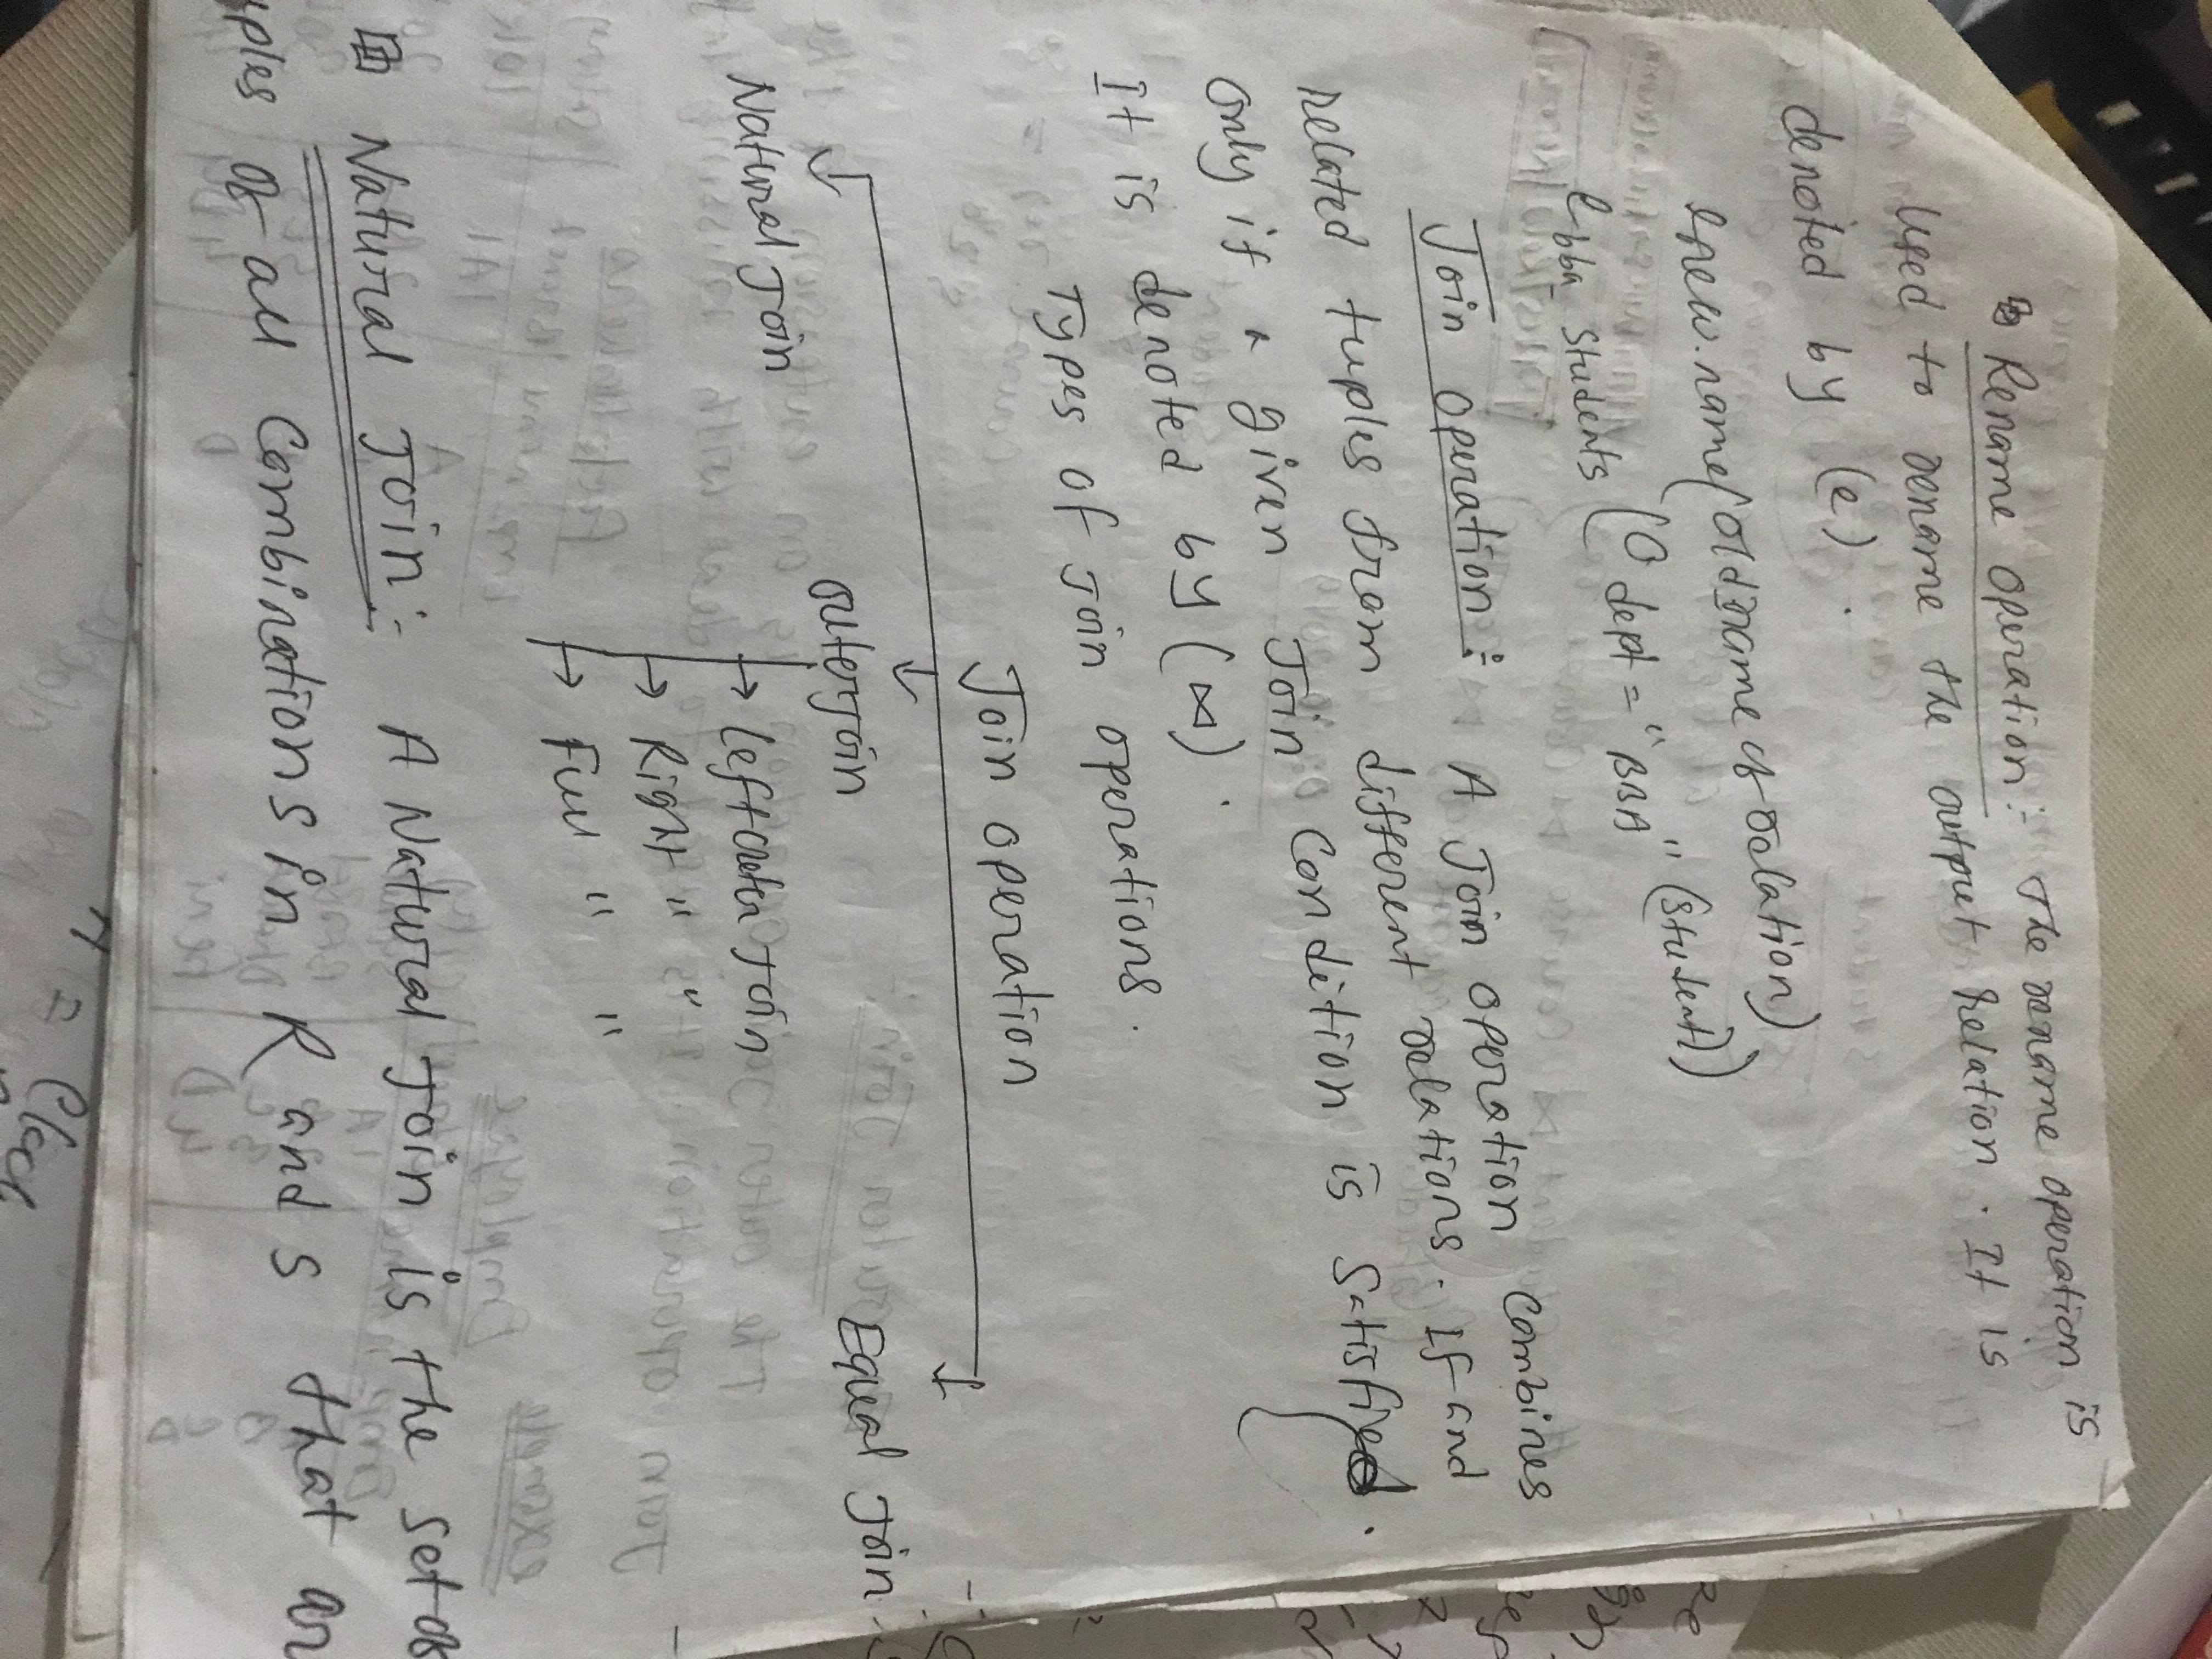 Rename operation:- The rename operation is
used to rename the output relation. It is
denoted by (e).
enew.name(old name of relation)
e bba_students (σ dept = "BBA" (student))
Join operation:- A Join operation combines
related tuples from different relations. If and
only if a given Join Condition is Satisfied.
It is denoted by (⋈).
Types of Join operations.
Join operation
Natural Join outerjoin Equal Join
→ Left outer Join
→ Right " "
→ Full " "
Natural Join:- A Natural Join is the set of
uples of all Combinations in R and S that ar
= Clock